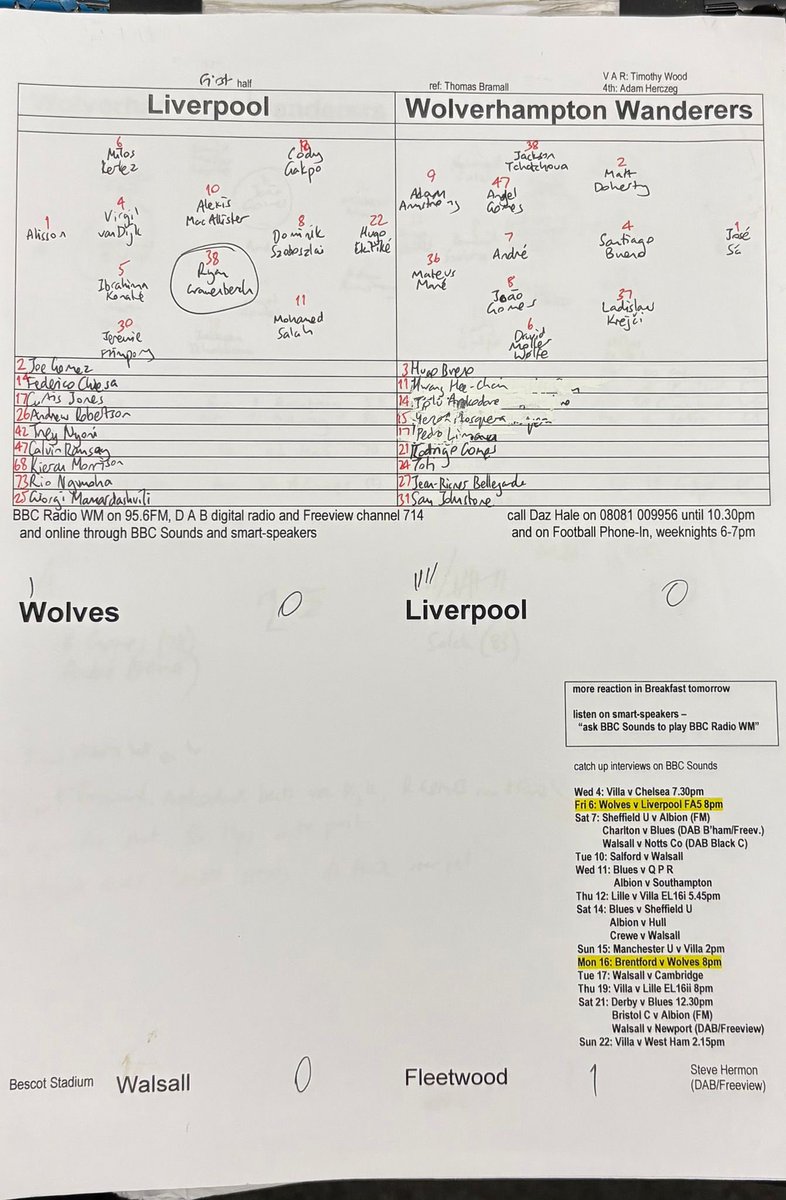 First half
ref: Thomas Bramall
V A R: Timothy Wood
4th: Adam Herczeg
Liverpool
Wolverhampton Wanderers
6
Milos
Kerkez
Cody
Gakpo
4
Virgil
van Dijk
10
Alexis
Mac Allister
1
Alisson
8
Dominik
Szoboszlai
22
Hugo
Ekitiké
5
Ibrahima
Konaté
38
Ryan
Gravenberch
11
Mohamed
Salah
30
Jeremie
Frimpong
38
Jackson
Tchatchoua
2
Matt
Doherty
9
Adam
Armstrong
47
Angel
Gomes
7
André
4
Santiago
Bueno
1
José
Sá
36
Mateus
Mané
8
João
Gomes
37
Ladislav
Krejčí
6
David
Møller
Wolfe
2 Joe Gomez
14 Federico Chiesa
17 Curtis Jones
26 Andrew Robertson
42 Trey Nyoni
47 Calvin Ramsay
68 Kieran Morrison
73 Rio Ngumoha
25 Giorgi Mamardashvili
3 Hugo Bueno
11 Hwang Hee-Chan
14 Tolu Arokodare
15 Yerson Mosquera
17 Pedro Lima
21 Rodrigo Gomes
24 Toti
27 Jean-Ricner Bellegarde
31 Sam Johnstone
BBC Radio WM on 95.6FM, D A B digital radio and Freeview channel 714
and online through BBC Sounds and smart-speakers
call Daz Hale on 08081 009956 until 10.30pm
and on Football Phone-In, weeknights 6-7pm
Wolves 0
Liverpool 0
more reaction in Breakfast tomorrow
listen on smart-speakers –
“ask BBC Sounds to play BBC Radio WM”
catch up interviews on BBC Sounds
Wed 4: Villa v Chelsea 7.30pm
Fri 6: Wolves v Liverpool FA5 8pm
Sat 7: Sheffield U v Albion (FM)
Charlton v Blues (DAB B'ham/Freev.)
Walsall v Notts Co (DAB Black C)
Tue 10: Salford v Walsall
Wed 11: Blues v Q P R
Albion v Southampton
Thu 12: Lille v Villa EL16i 5.45pm
Sat 14: Blues v Sheffield U
Albion v Hull
Crewe v Walsall
Sun 15: Manchester U v Villa 2pm
Mon 16: Brentford v Wolves 8pm
Tue 17: Walsall v Cambridge
Thu 19: Villa v Lille EL16ii 8pm
Sat 21: Derby v Blues 12.30pm
Bristol C v Albion (FM)
Walsall v Newport (DAB/Freeview)
Sun 22: Villa v West Ham 2.15pm
Bescot Stadium Walsall 0
Fleetwood 1
Steve Hermon
(DAB/Freeview)